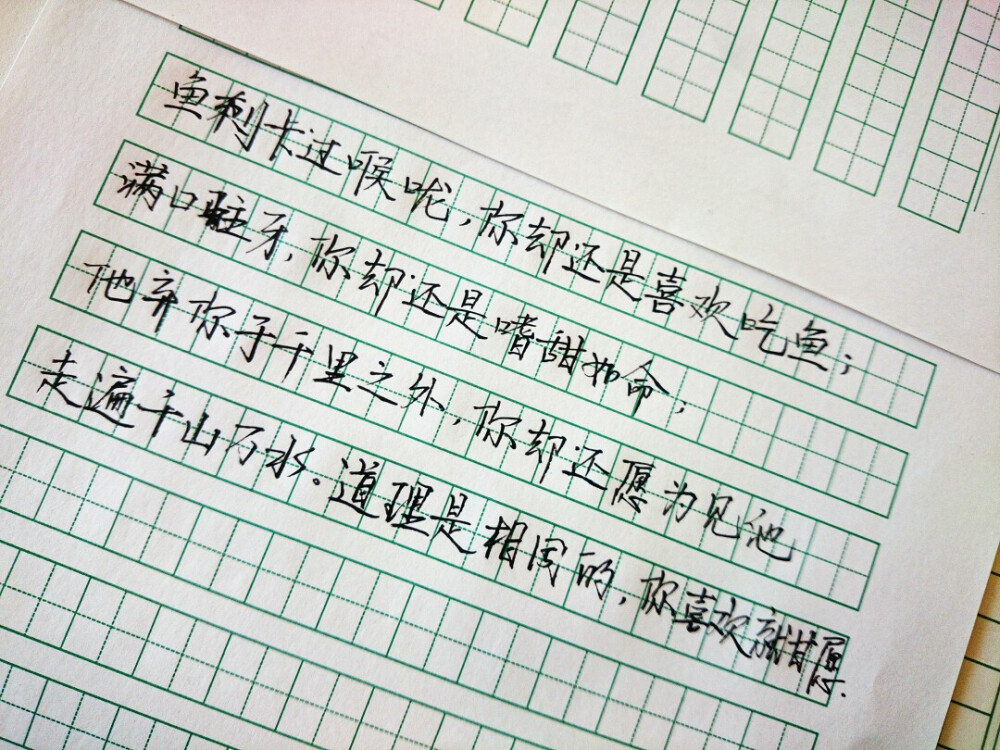 鱼刺卡过喉咙,你却还是喜欢吃鱼;
满口蛀牙,你却还是嗜甜如命;
他弃你于千里之外,你却还愿为见他
走遍千山万水。道理是相同的,你喜欢就甘愿.